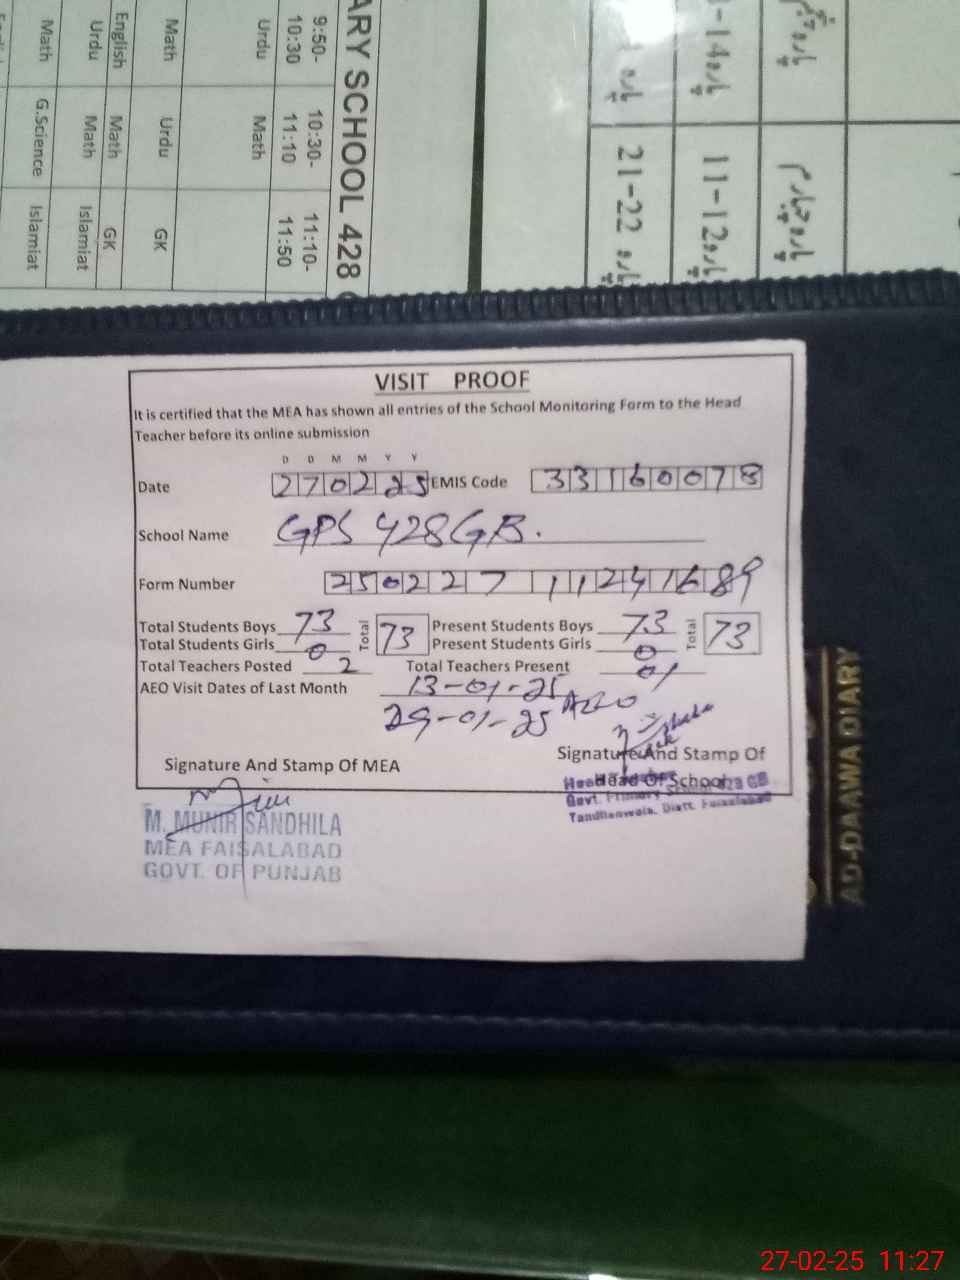 ARY SCHOOL 428
9:50-10:30
10:30-11:10
11:10-11:50
Urdu Math
Math Urdu GK
English Math GK
Urdu Math Islamiat
Math G.Science Islamiat
11-12
21-22
VISIT PROOF
It is certified that the MEA has shown all entries of the School Monitoring Form to the Head
Teacher before its online submission
D D M M Y Y
Date 270225 EMIS Code 33160078
School Name GPS 428GB.
Form Number 250227 11241689
Total Students Boys 73 Total 73 Present Students Boys 73 Total 73
Total Students Girls 0 Present Students Girls 0
Total Teachers Posted 2 Total Teachers Present 01
AEO Visit Dates of Last Month 13-01-25
29-01-25 AEO
Signature And Stamp Of MEA Signature And Stamp Of
Head Of School
Govt. Primary
Tandlianwala, Distt. Faisalabad
M. MUNIR SANDHILA
MEA FAISALABAD
GOVT. OF PUNJAB
AD-DAAWA DIARY
27-02-25 11:27